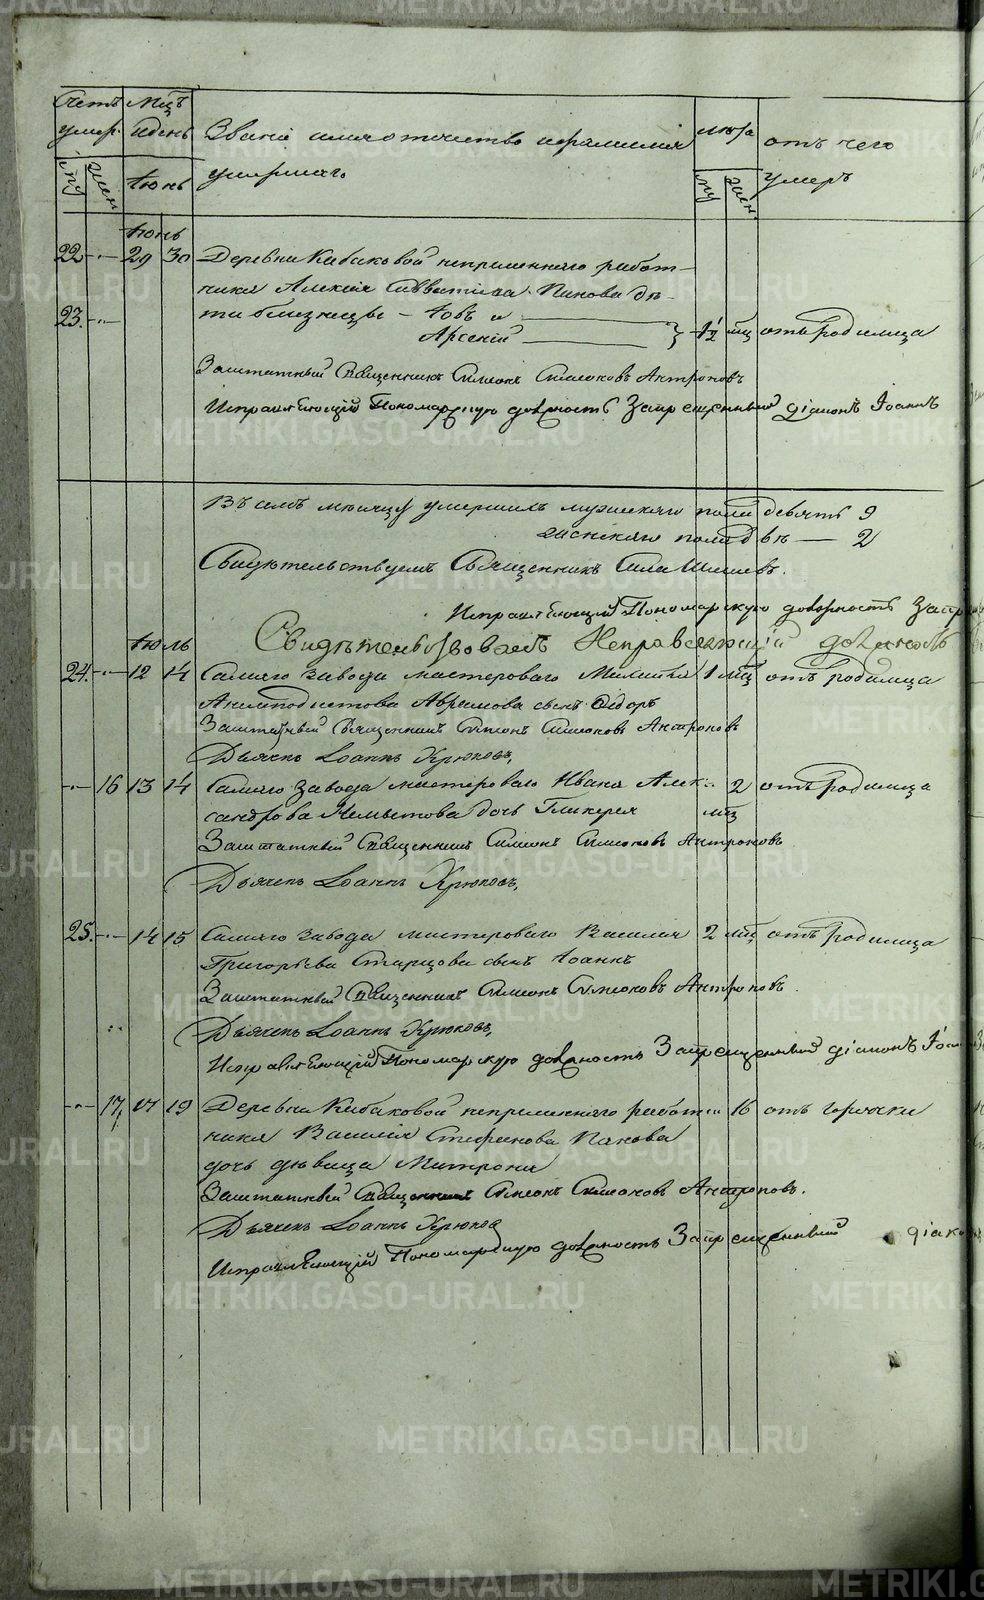 Счетъ умер. Мцъ и день Званiе имя отечество и фамилiя умершаго лѣта отъ чего умеръ
му жен Iюнь му жен.
Iюнь
22 -"- 29 30 Деревни Кабаковой непременнаго работ-
ника Алексѣя Савватiева Панова дѣ-
23. -"- ти близнецы - Iовъ и
Арсенiй 1 1/2 мц отъ Родимца
Заштатный Священникъ Симеонъ Симеоновъ Антроповъ
Исправляющiй Пономарскую должность Запрещенный дiаконъ Iоаннъ
Въ семъ месяцѣ умершихъ мужескаго пола девять 9
женскаго пола двѣ — 2
Свидѣтельствуемъ Священникъ Сила
Исправляющiй Пономарскую должность Запр
Свидѣтельствовалъ Исправляющiй должность
Iюль
24. -"- 12 14 Самаго завода мастероваго 1 мц отъ родимца
Аврамова сынъ Сидоръ
Заштатный Священникъ Симеонъ Симеоновъ Антроповъ
Дьячекъ Iоаннъ Крюковъ,
-"- 16 13 14 Самаго завода мастероваго Ивана Алек- 2 отъ Родимца
сандрова дочь Гликерiя мц
Заштатный Священникъ Симеонъ Симеоновъ Антроповъ
Дьячекъ Iоаннъ Крюковъ,
25. -"- 14 15 Самаго завода мастероваго Василiя 2 мц отъ родимца
Григорьева Старцова сынъ Iоаннъ
Заштатный Священникъ Симеонъ Симеоновъ Антроповъ.
Дьячекъ Iоаннъ Крюковъ,
Исправляющiй Пономарскую должность Запрещенный дiаконъ Iоан
-"- 17, 17 19 Деревни Кабаковой непременнаго работ- 16 отъ горячки
ника Василiя Стефанова Панова
дочь дѣвица Матрона
Заштатный Священникъ Симеонъ Симеоновъ Антроповъ.
Дьячекъ Iоаннъ Крюковъ
Исправляющiй Пономарскую должность Запрещенный дiакон
METRIKI.GASO-URAL.RU